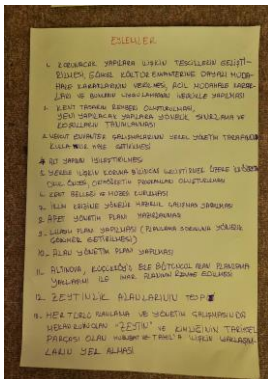 EYLEMLER
1. KORUNACAK YAPILARA İLİŞKİN TESCİLLERİN GELİŞTİ-
RİLMESİ, GÜNCEL KÜLTÜR ENVANTERİNE DAYALI MÜDA-
HALE KARARLARININ VERİLMESİ, ACİL MÜDAHALE KARAR-
LARI VE BUNLARIN UYGULANMASININ YAPILMASI
2. KENT TASARIM REHBERİ OLUŞTURULMASI,
YENİ YAPILACAK YAPILARA YÖNELİK SINIRLAMA VE
KOŞULLARIN TANIMLANMASI
3. MEVCUT ENVANTER ÇALIŞMALARININ YEREL YÖNETİM TARAFINDAN
HALE GETİRİLMESİ
4. YAPININ İYİLEŞTİRİLMESİ
5. YERELE İLİŞKİN KORUMA BİLİNCİNİ GELİŞTİRMEK ÜZERE
OKUL ÖNCESİ, ORTAÖĞRETİM PROGRAMLARI OLUŞTURULMASI
6. KENT BELLEĞİ VE MÜZESİ KURULMASI
7. İKLİM KRİZİNE YÖNELİK HAZIRLIK ÇALIŞMASI YAPILMASI
8. AFET YÖNETİM PLANI HAZIRLANMASI
9. PLAN YAPILMASI (PLANLAMA SORUNUNA YÖNELİK
GETİRİLMESİ)
10. ALAN YÖNETİM PLANI YAPILMASI
11. ALTINOVA, KÜÇÜKKÖY'Ü ELE BÜTÜNCÜL ALAN PLANLAMA
YAKLAŞIMI İLE İMAR PLANININ REVİZE EDİLMESİ
12. ZEYTİNLİK ALANLARININ TESPİTİ
13. HER TÜRLÜ PLANLAMA VE YÖNETİM ÇALIŞMASINDA
OLAN "ZEYTİN" VE KİMLİĞİNİN TARİHSEL
PARÇASI OLAN İLİŞKİN YAKLAŞIM-
LARIN YER ALMASI